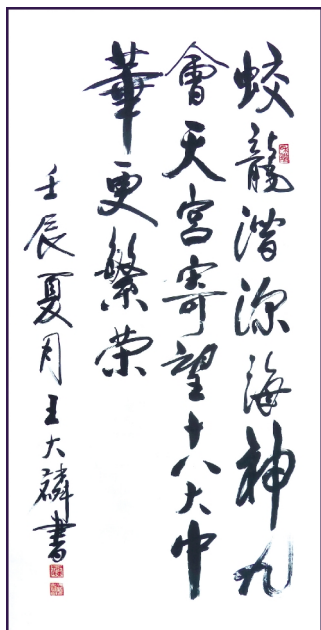 蛟龍潜深海神九
會天宮寄望十八大中
華更繁荣
壬辰夏月王大麟書